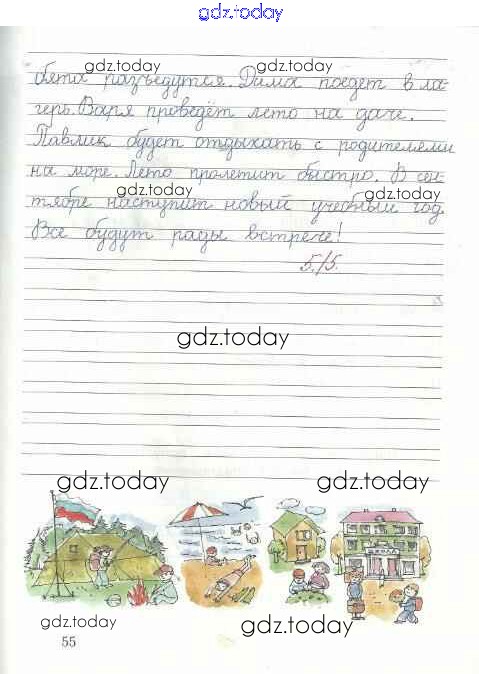 gdz.today
gdz.today gdz.today
бята разъедутся. Дима поедет в ла-
герь. Варя проведёт лето на даче.
Павлик будет отдыхать с родителями
на море. Лето пролетит быстро. В сен-
gdz.today gdz.today
тябре наступит новый учебный год.
Все будут рады встрече!
5./5.
gdz.today
gdz.today gdz.today
ШКОЛА
gdz.today gdz.today
55